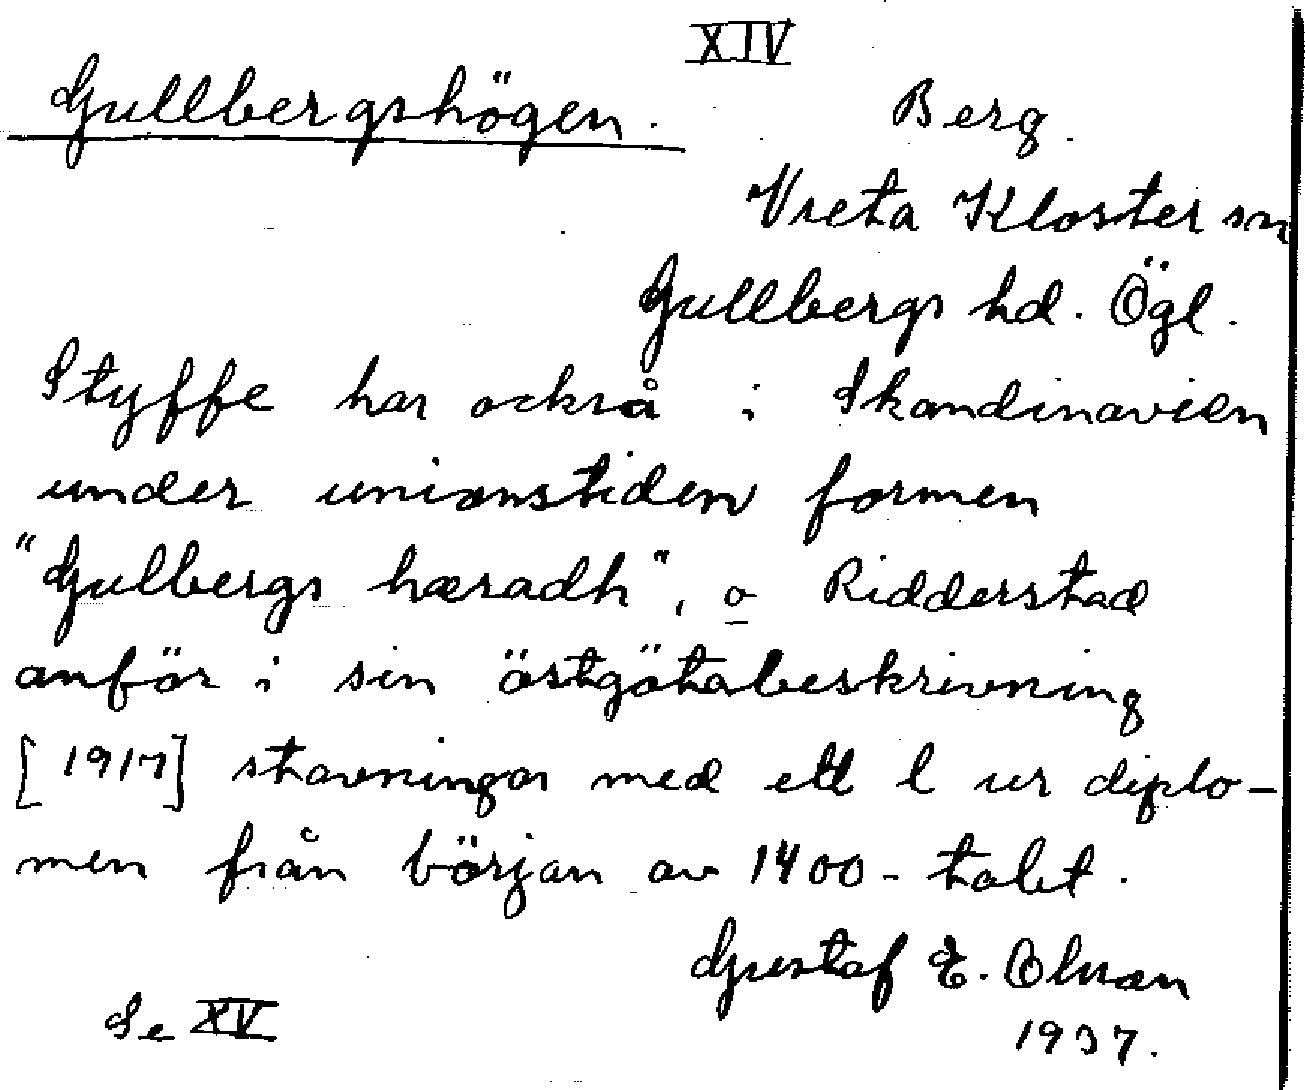 XIV
Gullbergshögen.
Berg.
Vreta Kloster sn
Gullbergs hd. Ögl.
Styffe har också i Skandinavien
under unionstiden formen
"Gulbergs hæradh", o Ridderstad
anför i sin östgötabeskrivning
[1917] stavningar med ett l ur diplo-
men från början av 1400-talet.
Gustaf E. Olsson
1937.
Se XV